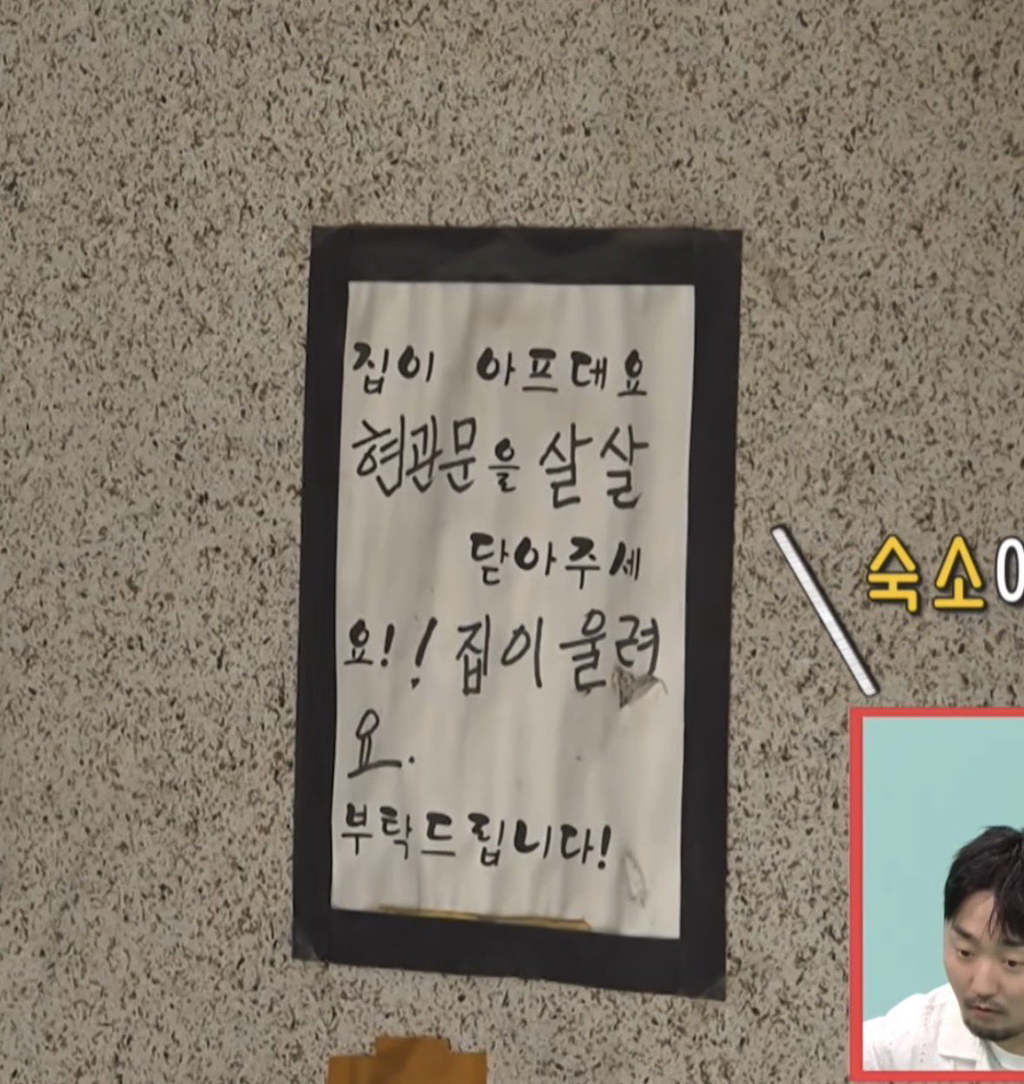 집이 아프데요
현관문을 살살
닫아주세
요!! 집이 울려
요.
부탁드립니다!
숙소